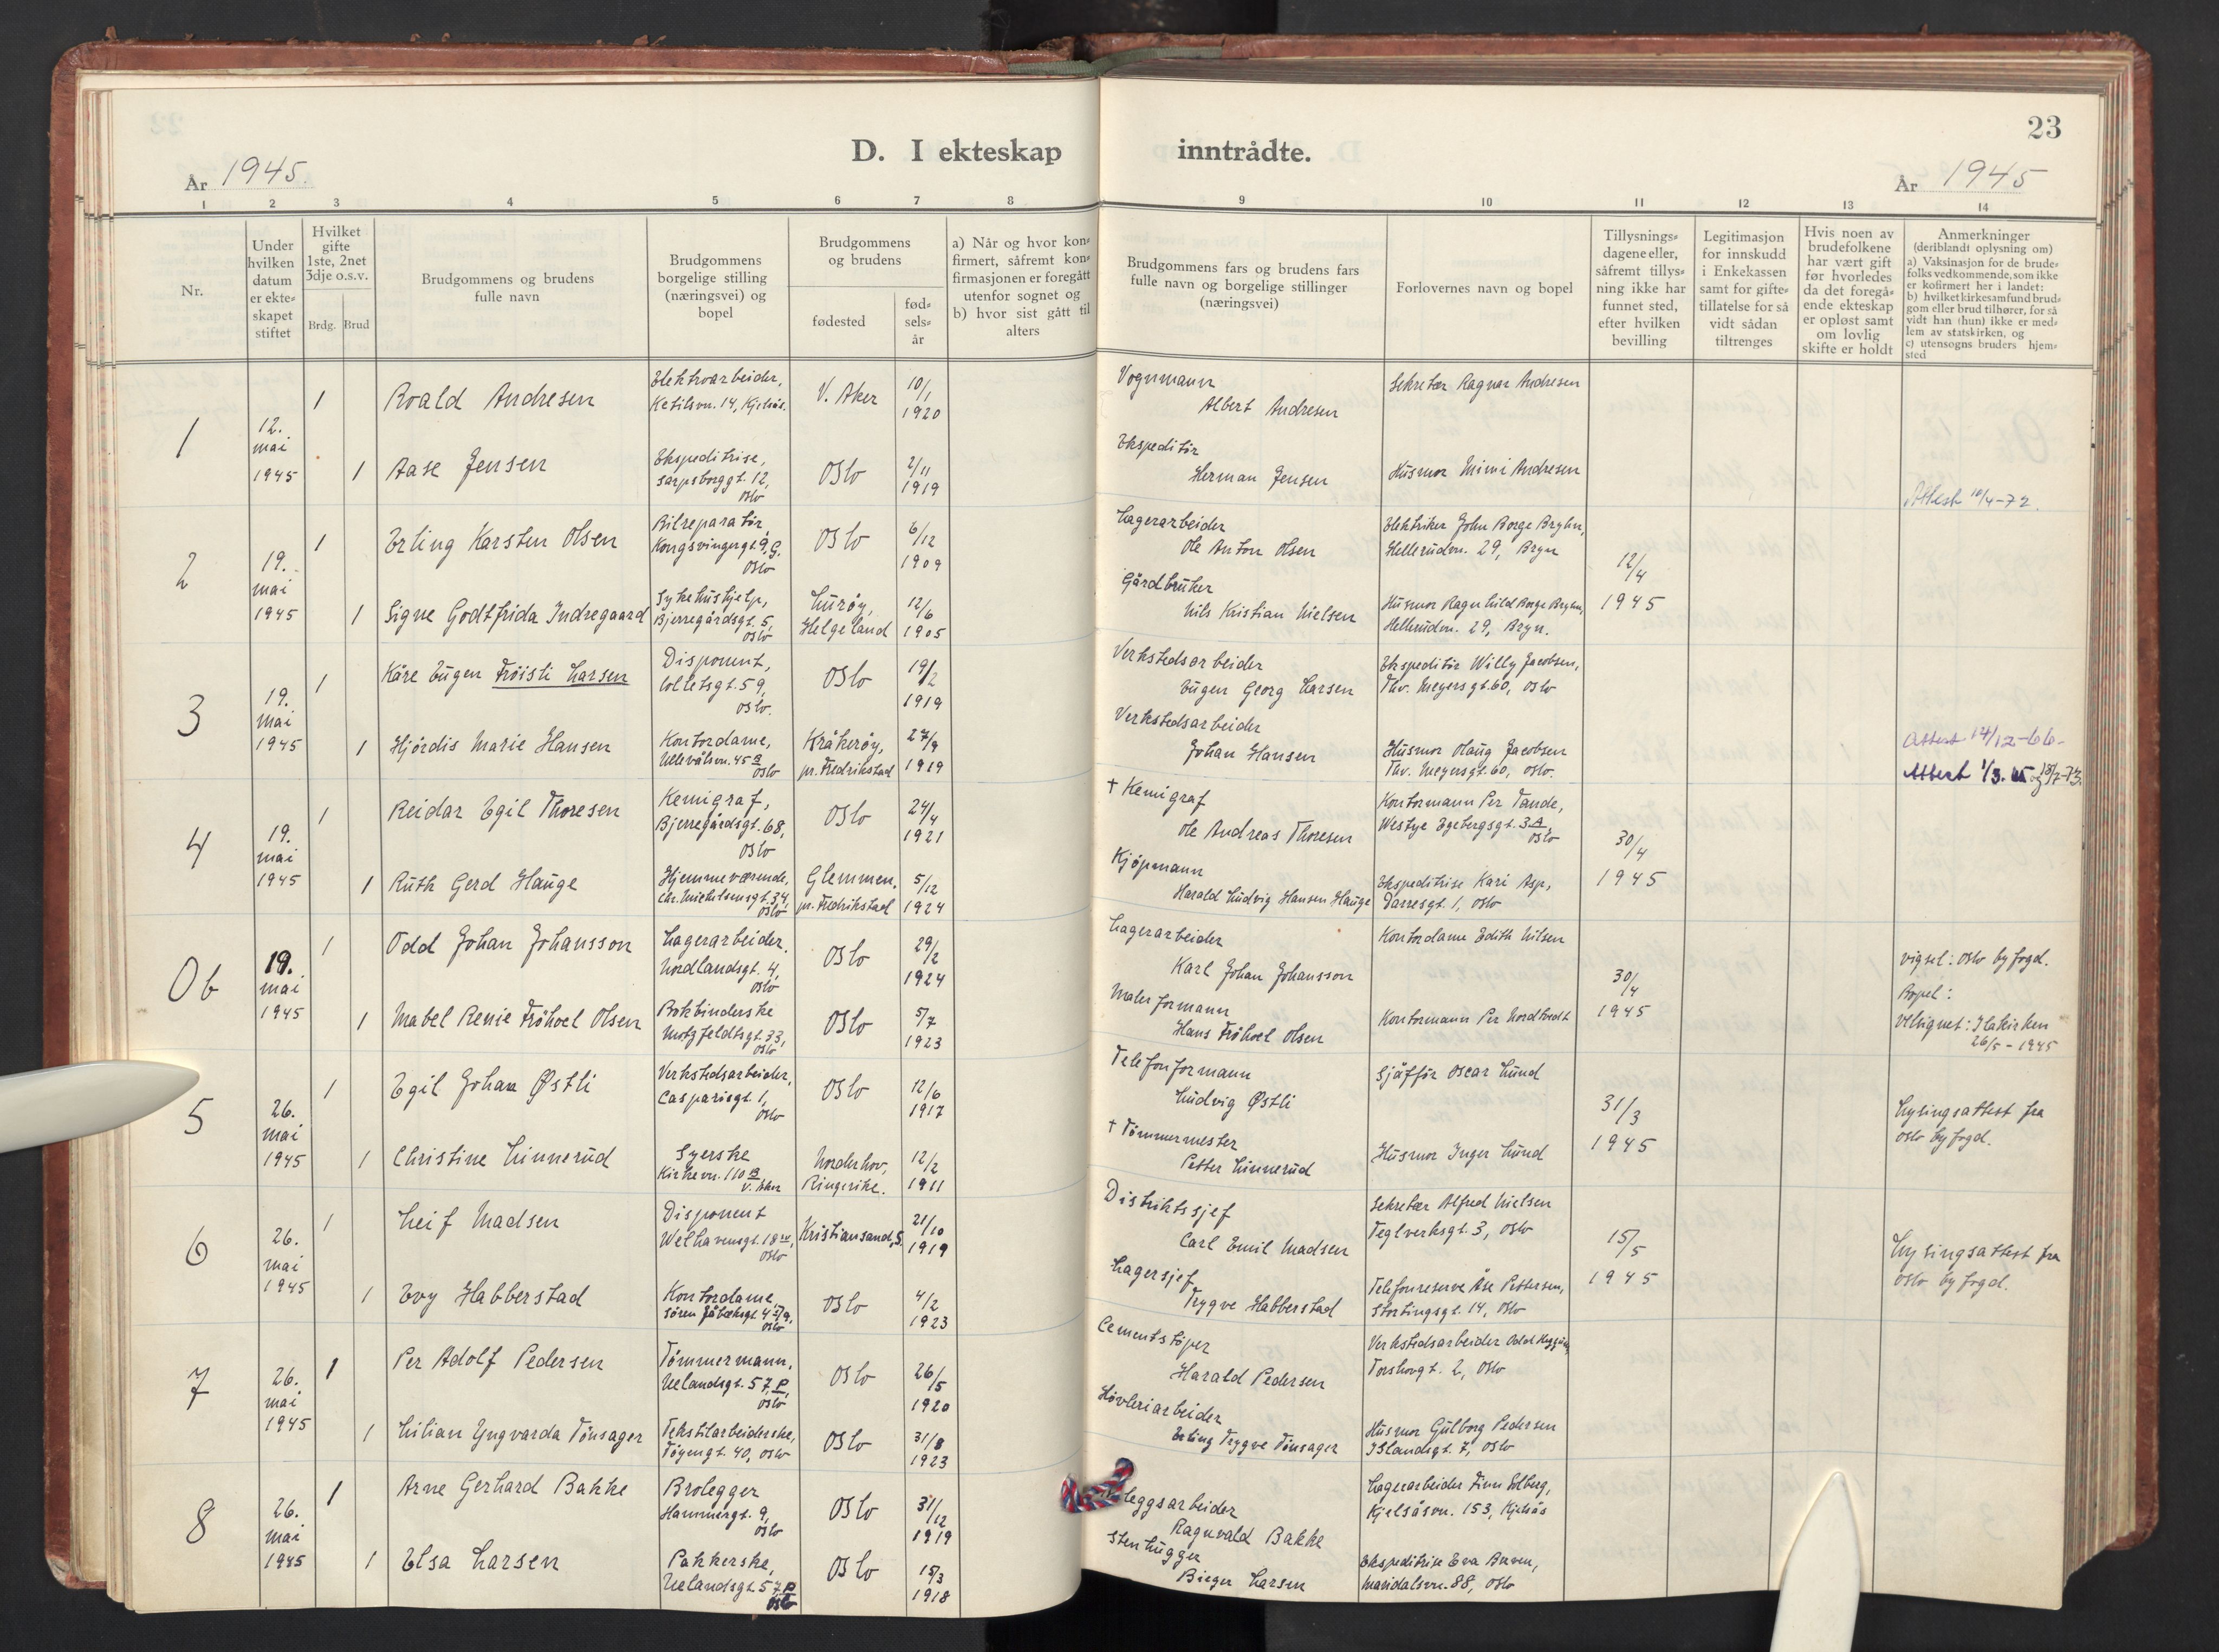 23
D. I ekteskap inntrådte.
År 1945.
År 1945
1 2 3 4 5 6 7 8 9 10 11 12 13 14
Nr.
Under
hvilken
datum
er ekte-
skapet
stiftet
Hvilket
gifte
1ste, 2net
3dje o.s.v.
Brdg. Brud
Brudgommens og brudens
fulle navn
Brudgommens
borgelige stilling
(næringsvei) og
bopel
Brudgommens
og brudens
fødested
fød-
sels-
år
a) Når og hvor kon-
firmert, såfremt kon-
firmasjonen er foregått
utenfor sognet og
b) hvor sist gått til
alters
Brudgommens fars og brudens fars
fulle navn og borgelige stillinger
(næringsvei)
Forlovernes navn og bopel
Tillysnings-
dagene eller,
såfremt tillys-
ning ikke har
funnet sted,
efter hvilken
bevilling
Legitimasjon
for innskudd
i Enkekassen
samt for gifte-
tillatelse for så
vidt sådan
tiltrenges
Hvis noen av
brudefolkene
har vært gift
før hvorledes
da det foregå-
ende ekteskap
er opløst samt
om lovlig
skifte er holdt
Anmerkninger
(deriblandt oplysning om)
a) Vaksinasjon for de brude-
folks vedkommende, som ikke
er kofirmert her i landet:
b) hvilket kirkesamfund brud-
gom eller brud tilhører, for så
vidt han (hun) ikke er med-
lem av statskirken, og
c) utensogns bruders hjem-
sted
1
12.
mai
1945
1
Roald Andresen
Elektroarbeider,
Ketilsvn. 14, Kjelsås.
V. Aker
10/1
1920
Vognmann
Albert Andresen
Sekretær Ragnar Andresen
1
Aase Jensen
Ekspeditrise,
Sarpsborggt. 12,
Oslo
Oslo
2/11
1919
Ekspeditør
Herman Jensen
Husmor Mimi Andresen
Attest 10/4-72.
2
19.
mai
1945
1
Erling Karsten Olsen
Bilreparatør,
Kongsvingergt. 9, G.
Oslo
Oslo
6/12
1909
Lagerarbeider
Ole Anton Olsen
Elektriker John Borge Bryhn,
Hellerudvn. 29, Bryn
12/4
1945
1
Signe Godtfrida Indregaard
Sykehushjelp,
Bjerregårdsgt. 5,
Oslo
Lurøy,
Helgeland
12/6
1905
Gårdbruker
Nils Kristian Nielsen
Husmor Ragnhild Borge Bryhn,
Hellerudvn. 29, Bryn.
3
19.
mai
1945
1
Kåre Eugen Frøisti Larsen
Disponent,
Colletsgt. 59,
Oslo.
Oslo
19/2
1919
Verkstedsarbeider
Eugen Georg Larsen
Ekspeditør Willy Jacobsen,
Thv. Meyersgt. 60, Oslo
1
Hjördis Marie Hansen
Kontordame,
Ullevålsvn. 45 B
Oslo
Kråkerøy,
pr. Fredrikstad
27/9
1919
Verkstedsarbeider
Johan Hansen
Husmor Olaug Jacobsen
Thv. Meyersgt. 60, Oslo.
Attest 14/12-66-
Attest 1/3.
4
19.
mai
1945
1
Reidar Egil Thoresen
Kemigraf,
Bjerregårdsgt. 68,
Oslo
Oslo
24/4
1921
† Kemigraf
Ole Andreas Thoresen
Kontormann Per Tande,
Westye Egebergsgt. 3 A,
Oslo
30/4
1945
1
Ruth Gerd Hauge
Hjemmeværende,
Chr. Michelsensgt. 34,
Oslo
Glemmen,
pr. Fredrikstad
5/12
1924
Kjøpmann
Harald Ludvig Hansen Hauge
Ekspeditrise Kari Asp,
Darresgt. 1, Oslo
0b
19.
mai
1945
1
Odd Johan Johansson
Lagerarbeider.
Nordlandsgt. 4,
Oslo
Oslo
29/2
1924
Lagerarbeider
Karl Johan Johansson
Kontordame Edith Nilsen
30/4
1945
vigsel: Oslo byfogd.
Bopel:
Velsignet: Ilakirken
26/5-1945
1
Mabel Renie Frøhoel Olsen
Bokbinderske
Motzfeldtsgt. 33,
Oslo
Oslo
5/7
1923
Malerformann
Hans Frøhoel Olsen
Kontormann Per Nordtvedt
5
26.
mai
1945
1
Egil Johan Østli
Verkstedsarbeider,
Casparisgt. 1,
Oslo
Oslo
12/6
1917
Telefonformann
Ludvig Østli
Sjåffør Oscar Lund
31/3
1945
Lysingsattest fra
Oslo byfogd.
1
Christine Linnerud
Syerske
Kirkevn. 110 B
V. Aker
Norderhov,
Ringerike.
12/2
1911
† Tømmermester
Petter Linnerud
Husmor Inger Lund
6
26.
mai
1945
1
Leif Madsen
Disponent
Welhavensgt. 18 IV,
Oslo
Kristiansand, S.
21/10
1919
Distriktssjef
Carl Emil Madsen
Sekretær Alfred Nielsen
Teglverksgt. 3, Oslo
15/5
1945
Lysingsattest fra
Oslo byfogd.
1
Evy Habberstad
Kontordame,
Søren Jåbæksgt. 4
Oslo
Oslo
4/2
1923
Lagersjef
Trygve Habberstad
Telefonreserve Åse Pettersen,
Stortingsgt. 14, Oslo
7
26.
mai
1945
1
Per Adolf Pedersen
Tømmermann,
Uelandsgt. 57, P,
Oslo
Oslo
26/5
1920
Cementstøper
Harald Pedersen
Verkstedsarbeider Odd
Torshovgt. 2, Oslo
1
Lilian Yngvarda Tönsager
Tekstilarbeiderske,
Tøyengt. 40, Oslo
Oslo
31/8
1923
Høvleriarbeider
Erling Trygve Tönsager
Husmor Gulborg Pedersen
Islandsgt. 7, Oslo
8
26.
mai
1945
1
Arne Gerhard Bakke
Brolegger
Hammergt. 9,
Oslo
Oslo
31/12
1919
leggsarbeider
Ragnvald Bakke
Lagerarbeider Finn Solberg,
Kjelsåsvn. 153, Kjelsås
1
Elsa Larsen
Pakkerske,
Uelandsgt. 57 P
Oslo
Oslo
15/3
1918
Stenhugger
Birger Larsen
Ekspeditrise Eva
Maridalsvn. 88, Oslo